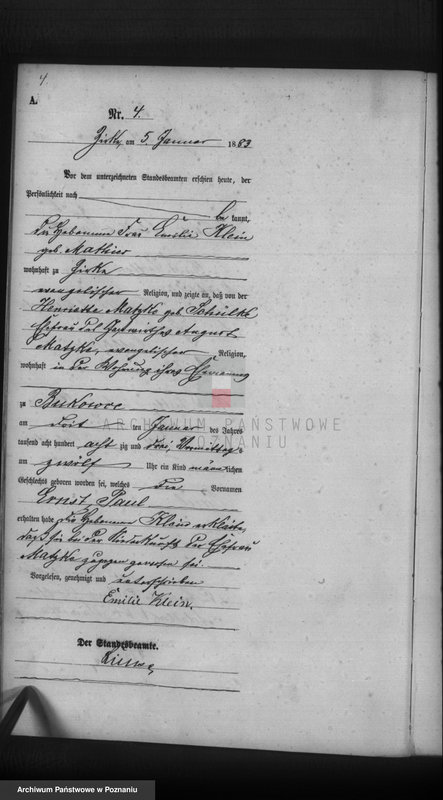 4.
A.
Nr. 4.
Zirke, am 5. Januar 1883
Vor dem unterzeichneten Standesbeamten erschien heute, der
Persönlichkeit nach
be kannt,
die Hebamme Frau Emilie Klein
geb.
wohnhaft zu Zirke
evangelischer Religion, und zeigte an, daß von der
Henriette Matzke geb. Schülke
Ehefrau des August
Matzke, evangelischer Religion,
wohnhaft in der Wohnung ihres Ehemannes
zu Bukowce
am ten Januar des Jahres
tausend acht hundert acht zig und drei, Vormittags
um zwölf Uhr ein Kind männlichen
Geschlechts geboren worden sei, welches die Vornamen
Ernst Paul
erhalten habe die Hebamme Klein erklärte,
daß sie bei der Niederkunft der Ehefrau
Matzke zugegen gewesen sei
Vorgelesen, genehmigt und unterschrieben
Emilie Klein.
Der Standesbeamte.
ARCHIWUM PAŃSTWOWE
W POZNANIU
Archiwum Państwowe w Poznaniu